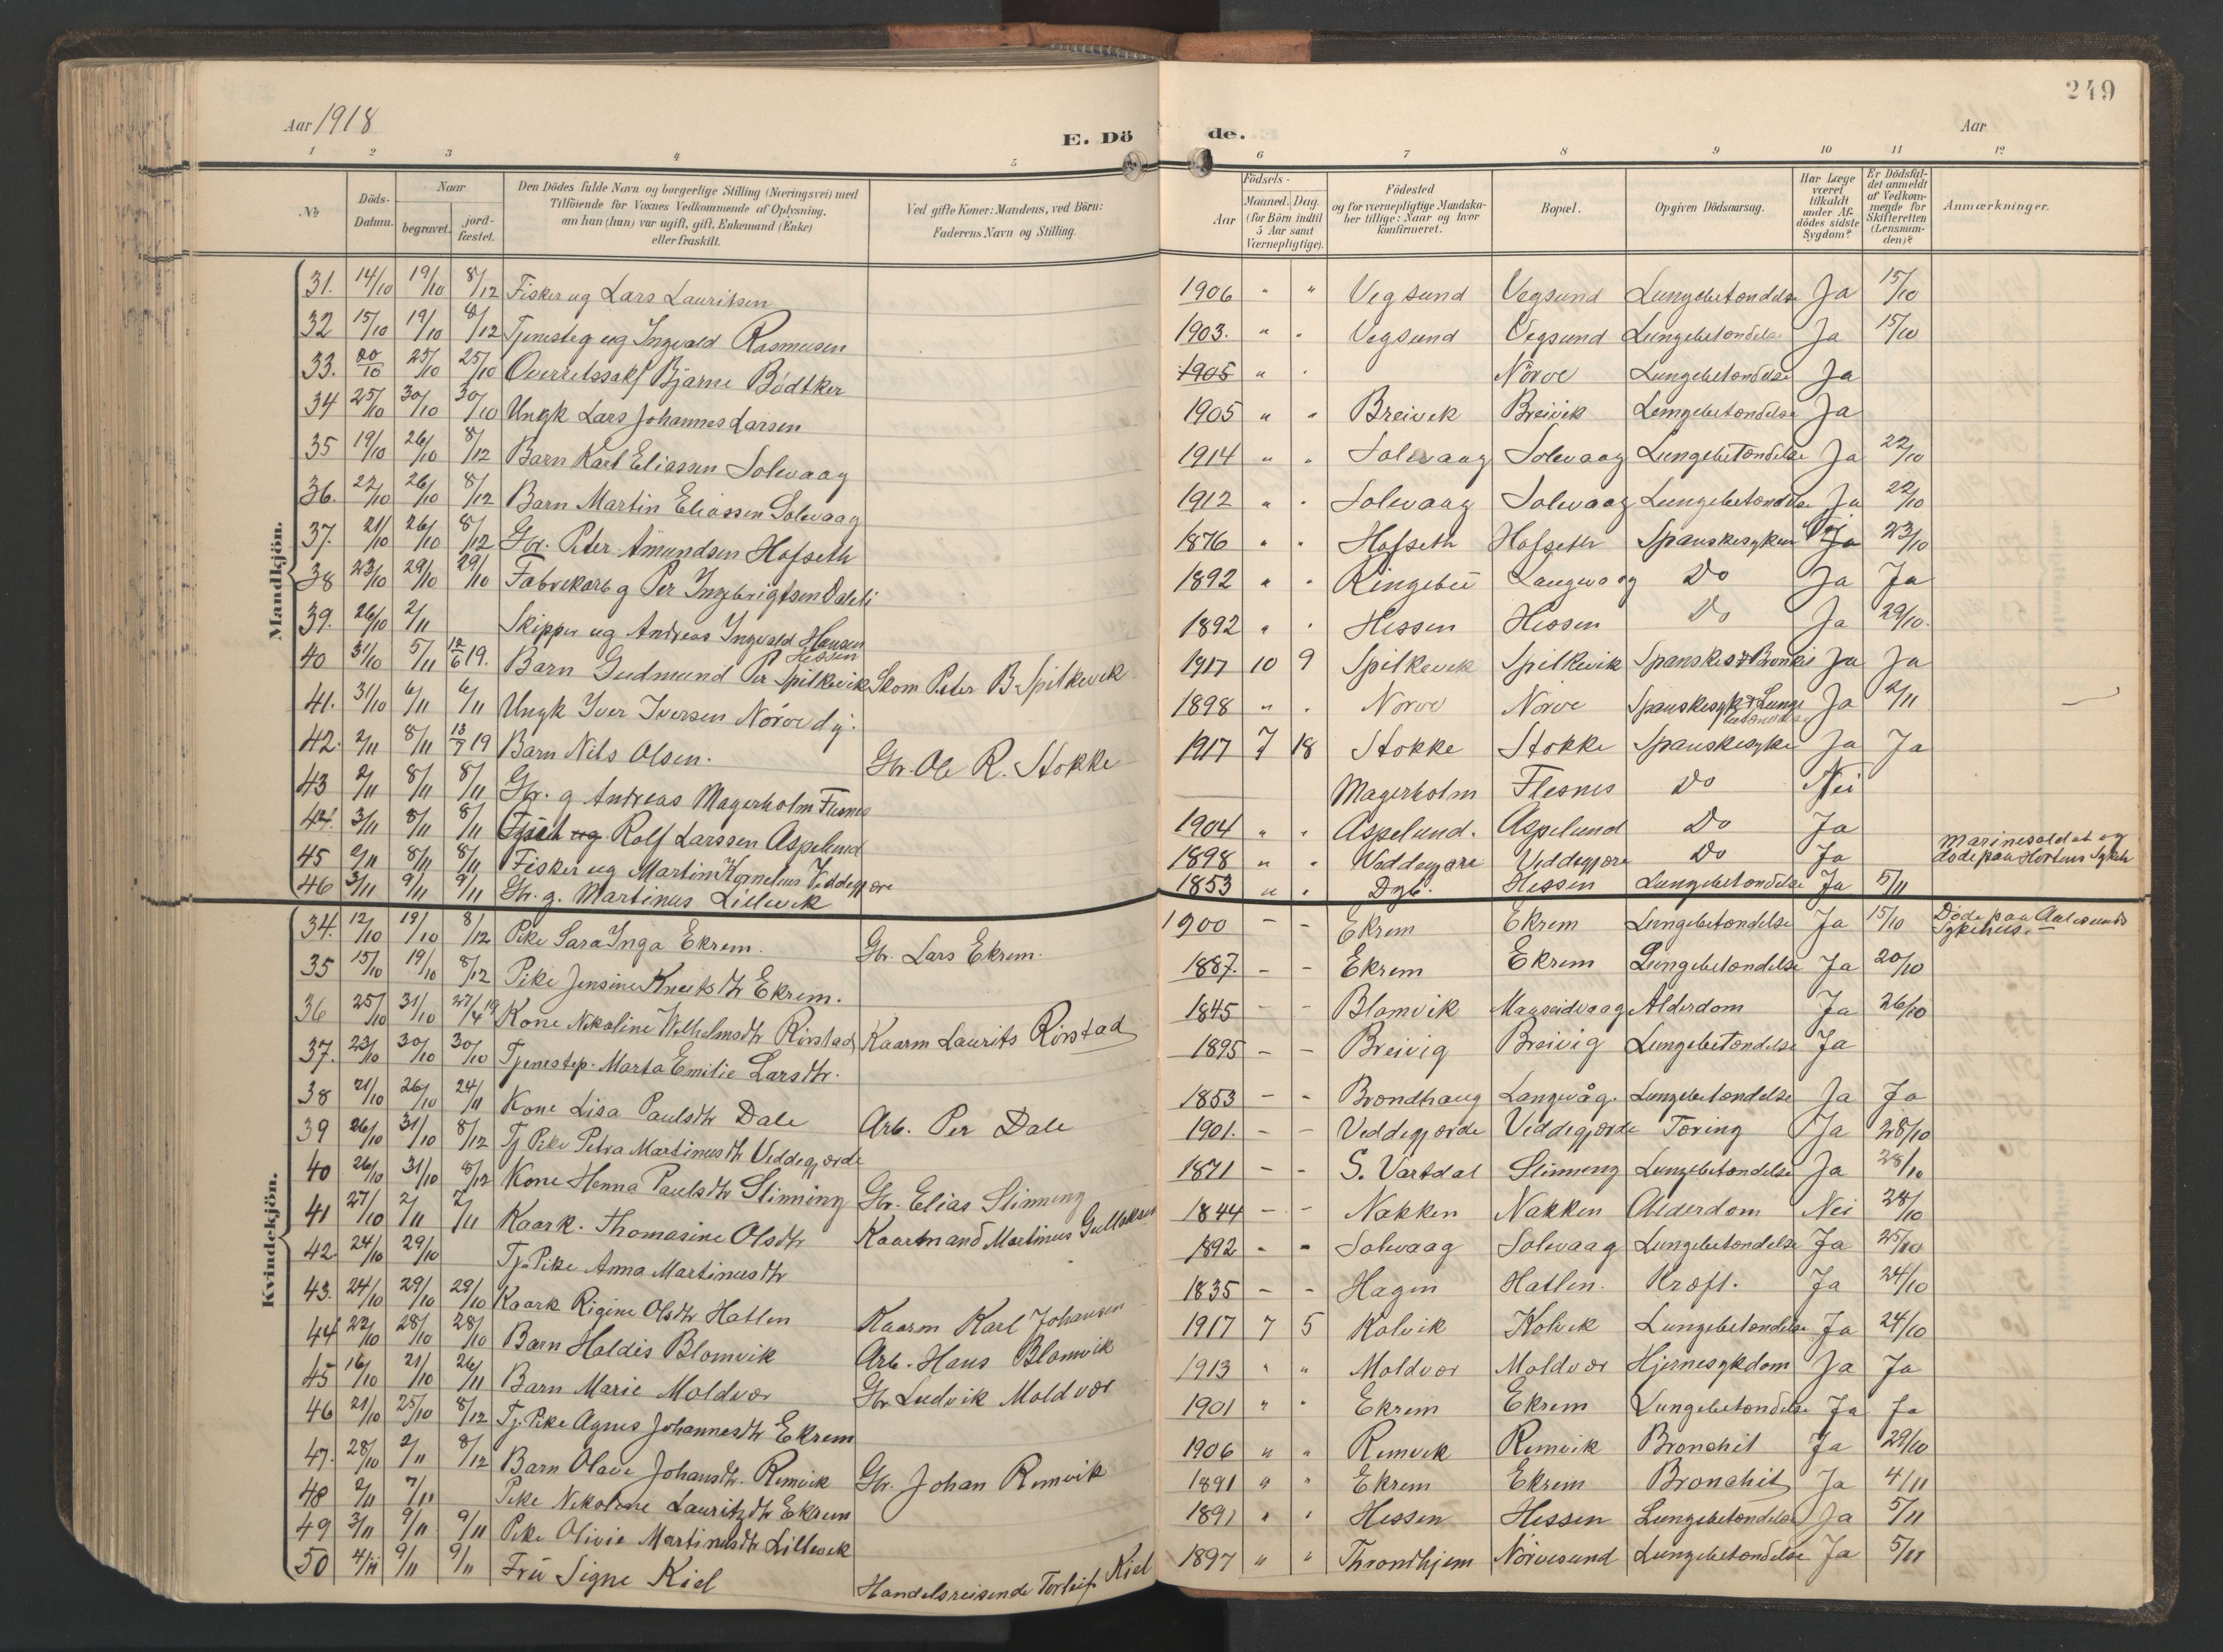 249
Aar 1918
E. Dö de.
Aar
1 2 3 4 5 6 7 8 9 10 11 12
№
Döds-Datum.
Naar begravet. jord-fæstet.
Den Dödes fulde Navn og borgerlige Stilling (Næringsvei) med
Tilföiende for Voxnes Vedkommende af Oplysning,
om han (hun) var ugift, gift, Enkemand (Enke)
eller fraskilt.
Ved gifte Koner: Mandens, ved Börn:
Faderens Navn og Stilling.
Födsels-
Aar
Maaned. Dag.
(for Börn indtil
5 Aar samt
Værnepligtige).
Födested
og for værnepligtige Mandska-
ber tillige: Naar og hvor
konfirmeret.
Bopæl.
Opgiven Dödsaarsag.
Har Læge
været
tilkaldt
under Af-
dödes sidste
Sygdom?
Er Dödsfal-
det anmeldt
af Vedkom-
mende for
Skifteretten
(Lensman-
den)?
Anmærkninger.
Mandkjön.
31. 14/10 19/10 8/12 Fisker ug Lars Lauritsen 1906 " " Vegsund Vegsund Lungebetændelse Ja 15/10
32 15/10 19/10 8/12 Tjenesteg ug Ingvald Rasmusen 1903. " " Vegsund Vegsund Lungebetændelse Ja 15/10
33. 20/10 25/10 25/10 Overretssakf Bjarne Bödtker 1905 " " Nörve Lungebetændelse Ja
34 25/10 30/10 30/10 Ungk Lars Johannes Larsen 1905 " " Breivik Breivik Lungebetændelse Ja
35 19/10 26/10 8/12 Barn Karl Eliassen Solevaag 1914 " " Solevaag Solevaag Lungebetændelse Ja 22/10
36. 22/10 26/10 8/12 Barn Martin Eliassen Solevaag 1912 " " Solevaag Solevaag Lungebetændelse Ja 22/10
37. 21/10 26/10 8/12 Gbr. Peter Amundsen Hofseth 1876 " " Hofseth Hofseth Spanskesyken Ja 23/10
38 23/10 29/10 29/10 Fabrekarb g Per Ingebrigtsen Dalebi 1892 " " Ringebu Langevaag Do Ja Ja
39. 26/10 2/11 Skipper ug Andreas Ingvald Hansen Hessen 1892 " " Hessen Hessen Do Ja 29/10.
40 31/10 5/11 12/6 19. Barn Gudmund Per Spilkevik Skom Peter B Spilkevik 1917 10 9 Spilkevik Spilkevik Spanskes & Bronkit Ja Ja
41. 31/10 6/11 6/11 Ungk Iver Iversen Nörve dy. 1898 " " Nörve Nörve Spanskesyk & Lunge betændelse Ja 2/11 —
42. 2/11 8/11 13/7 19 Barn Nils Olsen. Gbr. Ole R. Stokke 1917 7 18 Stokke Stokke Spanskesyke Ja Ja
43 2/11 8/11 8/11 Gbr. g Andreas Magerholm Flesnes Magerholm Flesnes Do Nei
44. 3/11 8/11 8/11 ug. Rolf Larssen Aspelund 1904 " " Aspelund. Aspelund Do Ja
45 2/11 8/11 8/11 Fisker ug Martin Kornelius Veddegjære 1898 " " Veddegjære Veddegjære Do Ja Marinesoldat og döde paa Hortens Sykeh
46 3/11 9/11 9/11 Gbr. g. Martinus Lillevik 1853 " " Dyb. Hessen Lungebetændelse Ja 5/11
Kvindekjön.
34. 12/10 19/10 8/12 Pike Sara Inga Ekrem. Gbr. Lars Ekrem. 1900 – – Ekrem Ekrem Lungebetændelse Ja 15/10 Döde paa Aalesunds Sykehus.
35 15/10 19/10 8/12 Pike Jensine Knutsdtr Ekrem. 1887. – – Ekrem Ekrem Lungebetændelse Ja 20/10
36 25/10 31/10 27/4 19 Kone Nikoline Wilhelmsdtr Rörstad Kaarm Laurits Rörstad 1845 – – Blomvik Mauseidvaag Alderdom Ja 26/10
37. 23/10 30/10 30/10 Tjenestep. Marta Emilie Larsdtr. 1895 – – Breivig Breivig Lungebetændelse Ja
38 21/10 26/10 24/11 Kone Lisa Paulsdtr Dale Arb. Per Dale 1853 – – Brondhaug Langevåg. Lungebetændelse Ja Ja
39 26/10 31/10 8/12 Tj Pike Petra Martinusdtr Veddegjærde 1901. – – Veddegjærde Veddegjærde Tæring Ja 28/10
40 26/10 31/10 8/12 Kone Hanna Paulsdtr Slinning Gbr. Elias Slinning 1871 – – S. Vartdal Slinning Lungebetændelse Ja 28/10
41 27/10 2/11 2/11 Kaark. Thomasine Olsdtr Kaarmand Martinus Gullaksen 1844 – – Nakken Nakken Alderdom Nei 28/10
42 24/10 29/10 Tj. Pike Anna Martinusdtr 1892 – – Solevaag Solevaag Lungebetændelse Ja 25/10
43. 24/10 29/10 29/10 Kaark Rigine Olsdtr Hatlen Kaarm Karl Johansen 1835 – – Hagen Hatlen. Kræft. Ja 24/10
44 22/10 28/10 28/10 Barn Haldis Blomvik Arb. Hans Blomvik 1917 7 5 Kalvik Kalvik Lungebetændelse Ja 24/10
45 16/10 21/10 26/11 Barn Marie Moldvær Gbr Ludvik Moldvær 1913 " " Moldvær Moldvær Hjernesykdom Ja Ja
46 21/10 25/10 8/12 Tj. Pike Agnes Johannesdtr Ekrem 1901 " " Ekrem Ekrem Lungebetændelse Ja Ja
47. 28/10 2/11 8/12 Barn Olave Johansdtr. Remvik Gbr. Johan Remvik 1906 " " Remvik Remvik Bronchit Ja 29/10
48 2/11 7/11 Pike Nikoline Lauritzdtr Ekrem 1891 " " Ekrem Ekrem Bronchit Ja 4/11
49 3/11 9/11 9/11 Pike Olivie Martinusdtr Lillevik 1891 " " Hessen Hessen Lungebetændelse Ja 5/11
50 4/11 9/11 9/11 Fru Signe Kiel Handelsreisende Torleif Kiel 1897 " " Throndhjem Nörvesund Lungebetændelse Ja 5/11